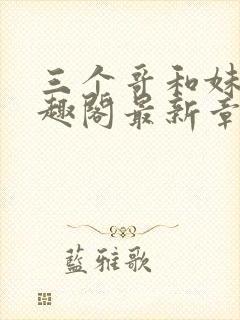 三个哥和妹
趣阁最新章
藍雅歌